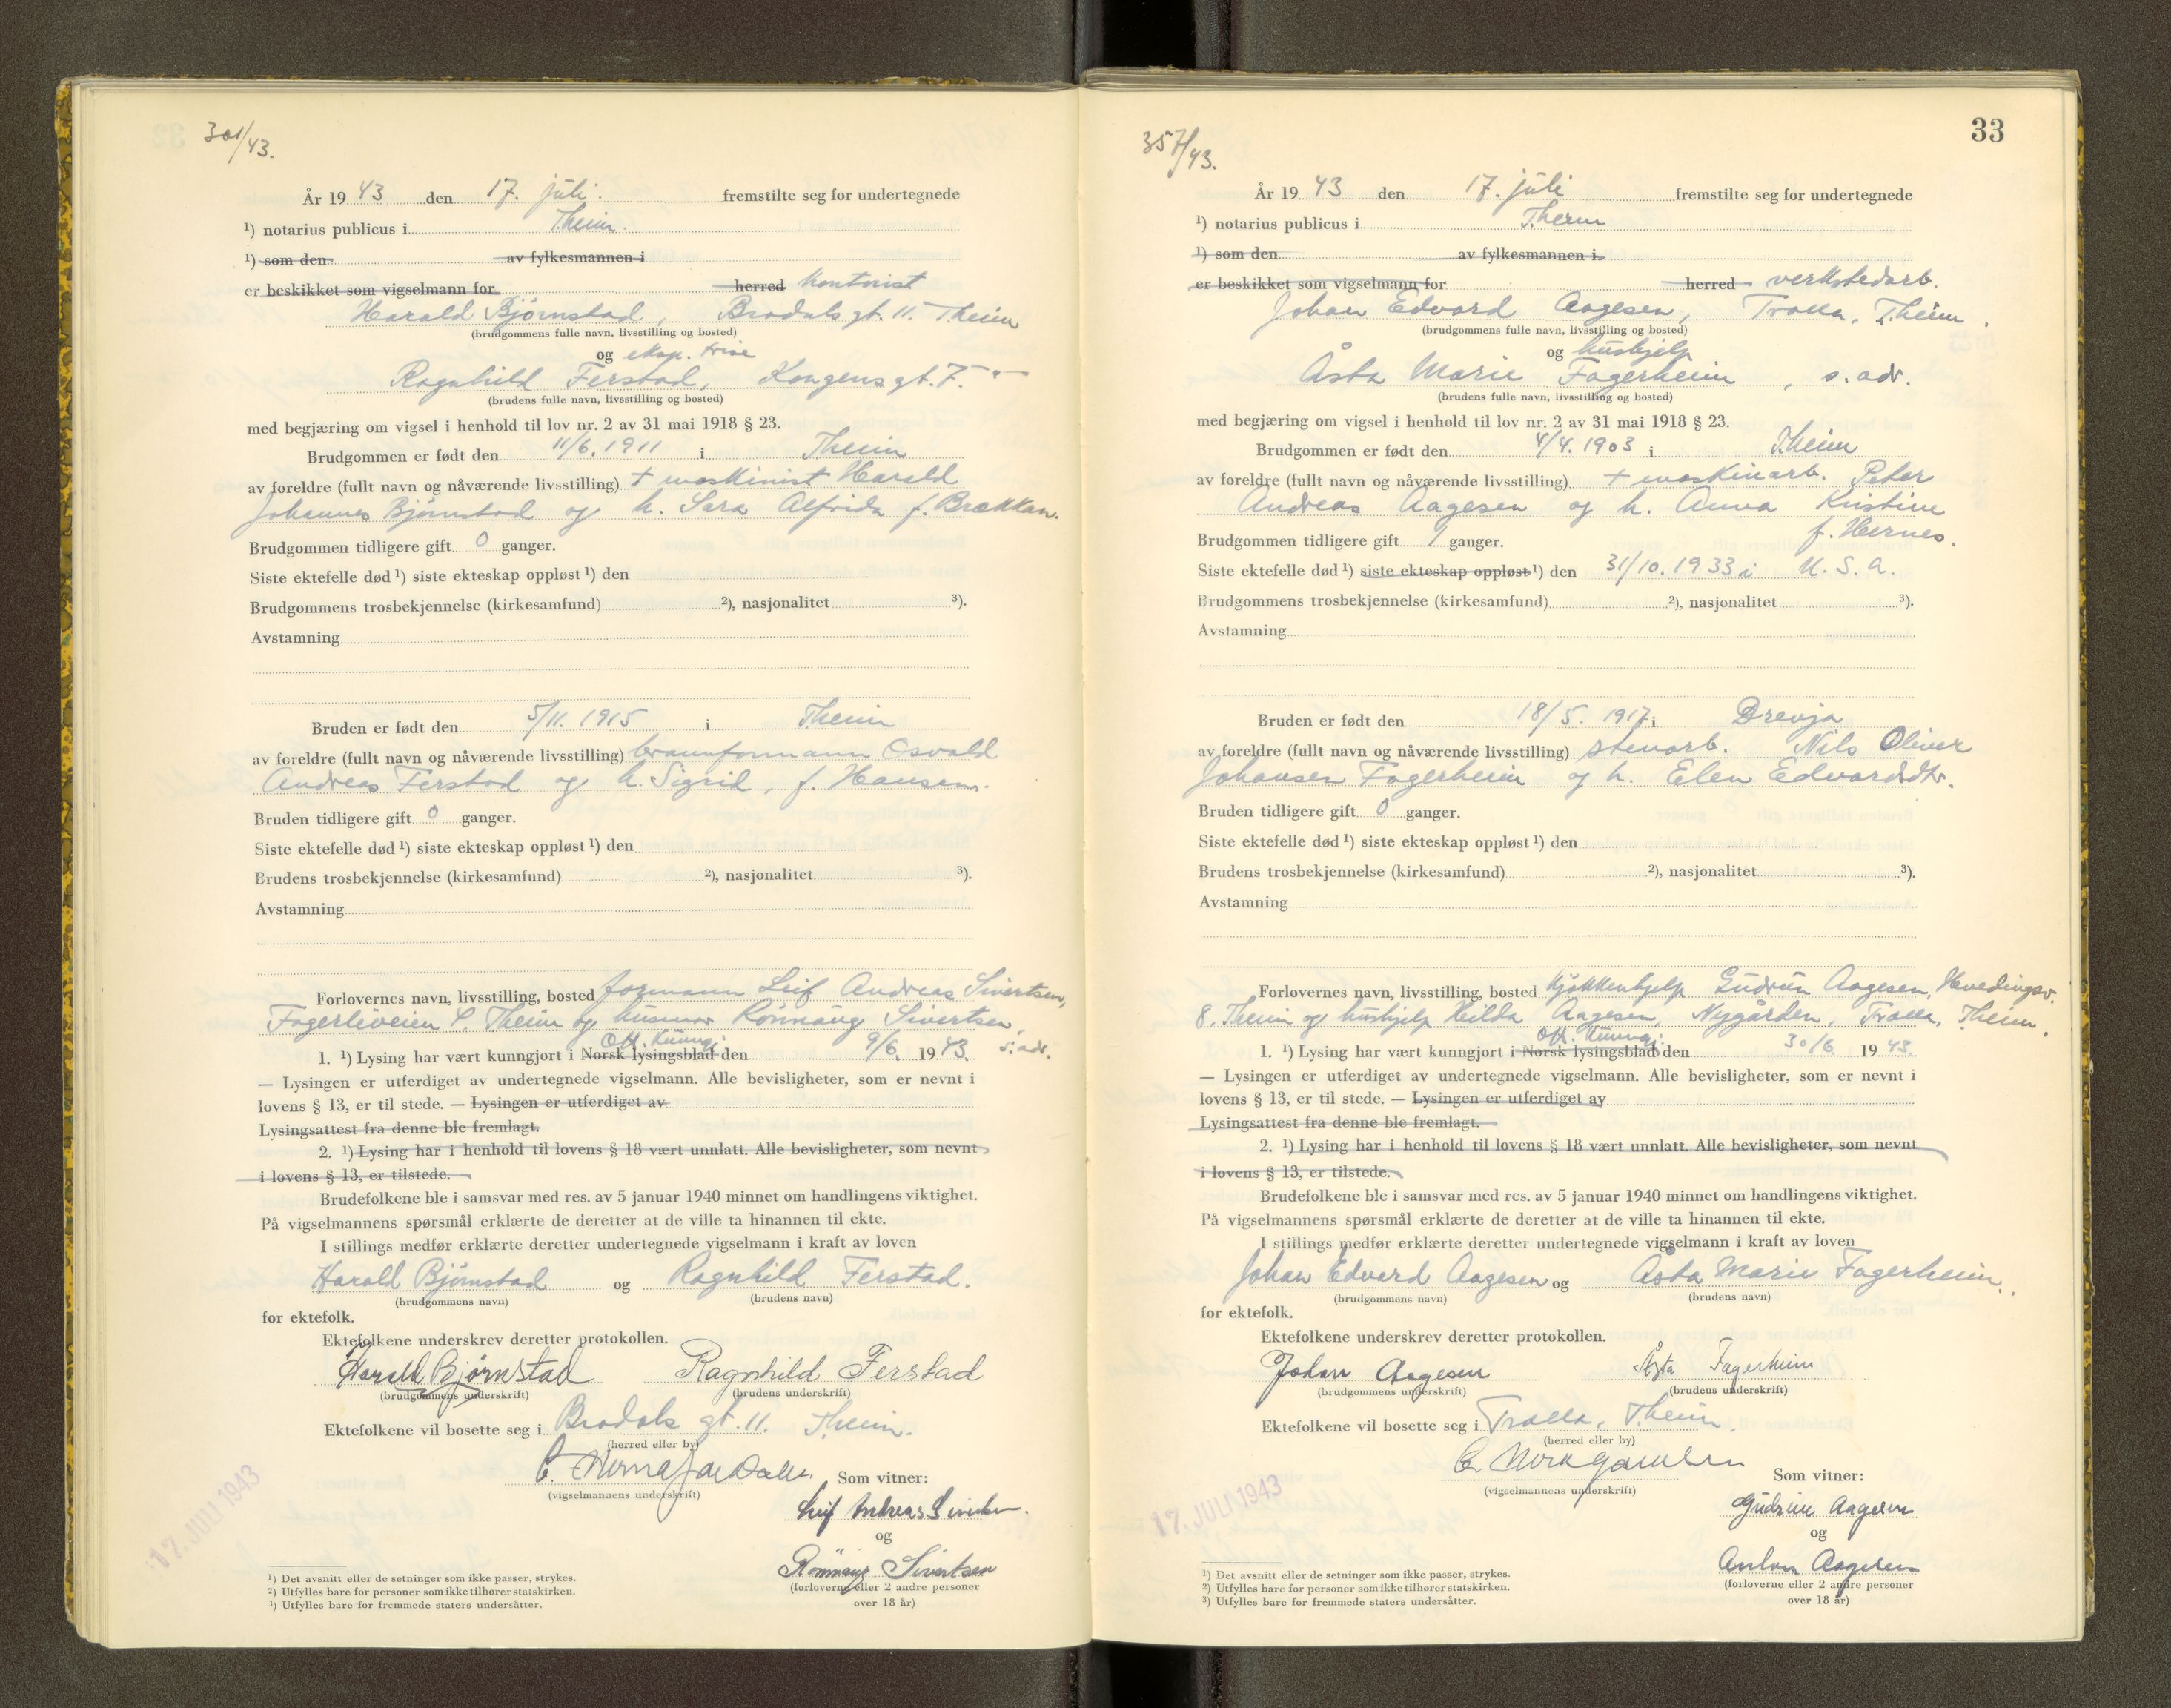 301/43.
År 1943 den 17. juli. fremstilte seg for undertegnede
¹) notarius publicus i T.heim.
¹) som den av fylkesmannen i
er beskikket som vigselmann for herred kontorist
Harald Bjørnstad, Brodals gt. 11. T.heim
(brudgommens fulle navn, livsstilling og bosted)
og eksp. trise
Ragnhild Ferstad, Kongensgt. 7. "
(brudens fulle navn, livsstilling og bosted)
med begjæring om vigsel i henhold til lov nr. 2 av 31 mai 1918 § 23.
Brudgommen er født den 11/6. 1911 i T.heim
av foreldre (fullt navn og nåværende livsstilling) + maskinist Harald
Johannes Bjørnstad og h. Sara Alfrida f. Brækkan.
Brudgommen tidligere gift 0 ganger.
Siste ektefelle død ¹) siste ekteskap oppløst ¹) den
Brudgommens trosbekjennelse (kirkesamfund) ²), nasjonalitet ³).
Avstamning
Bruden er født den 5/11. 1915 i T.heim
av foreldre (fullt navn og nåværende livsstilling) brannformann Osvald
Andreas Ferstad og h. Sigrid, f. Hansen.
Bruden tidligere gift 0 ganger.
Siste ektefelle død ¹) siste ekteskap oppløst ¹) den
Brudens trosbekjennelse (kirkesamfund) ²), nasjonalitet ³).
Avstamning
Forlovernes navn, livsstilling, bosted formann Leif Andreas Sivertsen,
Fagerliveien T.heim og husmor Rönnaug Sivertsen, s. adr.
Off. Kunngj.
1. ¹) Lysing har vært kunngjort i Norsk lysingsblad den 9/6. 1943.
— Lysingen er utferdiget av undertegnede vigselmann. Alle bevisligheter, som er nevnt i
lovens § 13, er til stede. — Lysingen er utferdiget av
Lysingsattest fra denne ble fremlagt.
2. ¹) Lysing har i henhold til lovens § 18 vært unnlatt. Alle bevisligheter, som nevnt
i lovens § 13, er tilstede.
Brudefolkene ble i samsvar med res. av 5 januar 1940 minnet om handlingens viktighet.
På vigselmannens spørsmål erklærte de deretter at de ville ta hinannen til ekte.
I stillings medfør erklærte deretter undertegnede vigselmann i kraft av loven
Harald Bjørnstad og Ragnhild Ferstad.
(brudgommens navn) (brudens navn)
for ektefolk.
Ektefolkene underskrev deretter protokollen.
Harald Bjørnstad Ragnhild Ferstad
(brudgommens underskrift) (brudens underskrift)
Ektefolkene vil bosette seg i Brodals gt. 11. T.heim.
(herred eller by)
Som vitner:
(vigselmannens underskrift)
Leif Andreas Sivertsen.
og
Rönnaug Sivertsen
(forloverne eller 2 andre personer
over 18 år)
17. JULI 1943
¹) Det avsnitt eller de setninger som ikke passer, strykes.
²) Utfylles bare for personer som ikke tilhører statskirken.
³) Utfylles bare for fremmede staters undersåtter.
33
357/43.
År 1943 den 17. juli fremstilte seg for undertegnede
¹) notarius publicus i T.heim
¹) som den av fylkesmannen i
er beskikket som vigselmann for herred verkstedarb.
Johan Edvard Aagesen, Trolla, T.heim.
(brudgommens fulle navn, livsstilling og bosted)
og hushjelp
Åsta Marie Fagerheim, s. adr.
(brudens fulle navn, livsstilling og bosted)
med begjæring om vigsel i henhold til lov nr. 2 av 31 mai 1918 § 23.
Brudgommen er født den 4/4. 1903 i T.heim
av foreldre (fullt navn og nåværende livsstilling) + maskinarb. Peter
Andreas Aagesen og h. Anna Kristine
f. Hernes.
Brudgommen tidligere gift 1 ganger.
Siste ektefelle død ¹) siste ekteskap oppløst ¹) den 31/10. 1933 i U. S. A.
Brudgommens trosbekjennelse (kirkesamfund) ²), nasjonalitet ³).
Avstamning
Bruden er født den 18/5. 1917 i Drevja
av foreldre (fullt navn og nåværende livsstilling) stenarb. Nils Oliver
Johansen Fagerheim og h. Elen Edvardsdtr.
Bruden tidligere gift 0 ganger.
Siste ektefelle død ¹) siste ekteskap oppløst ¹) den
Brudens trosbekjennelse (kirkesamfund) ²), nasjonalitet ³).
Avstamning
Forlovernes navn, livsstilling, bosted kjøkkenhjelp Gudrun Aagesen, Havedingsv.
8. T.heim og hushjelp Hilda Aagesen, Nygården, Trolla, T.heim.
Off. Kunngj.
1. ¹) Lysing har vært kunngjort i Norsk lysingsblad den 30/6 1943.
— Lysingen er utferdiget av undertegnede vigselmann. Alle bevisligheter, som er nevnt i
lovens § 13, er til stede. — Lysingen er utferdiget av
Lysingsattest fra denne ble fremlagt.
2. ¹) Lysing har i henhold til lovens § 18 vært unnlatt. Alle bevisligheter, som nevnt
i lovens § 13, er tilstede.
Brudefolkene ble i samsvar med res. av 5 januar 1940 minnet om handlingens viktighet.
På vigselmannens spørsmål erklærte de deretter at de ville ta hinannen til ekte.
I stillings medfør erklærte deretter undertegnede vigselmann i kraft av loven
Johan Edvard Aagesen og Åsta Marie Fagerheim.
(brudgommens navn) (brudens navn)
for ektefolk.
Ektefolkene underskrev deretter protokollen.
Johan Aagesen Åsta Fagerheim
(brudgommens underskrift) (brudens underskrift)
Ektefolkene vil bosette seg i Trolla, T.heim.
(herred eller by)
Som vitner:
(vigselmannens underskrift)
Gudrun Aagesen
og
Anton Aagesen
(forloverne eller 2 andre personer
over 18 år)
17. JULI 1943
¹) Det avsnitt eller de setninger som ikke passer, strykes.
²) Utfylles bare for personer som ikke tilhører statskirken.
³) Utfylles bare for fremmede staters undersåtter.